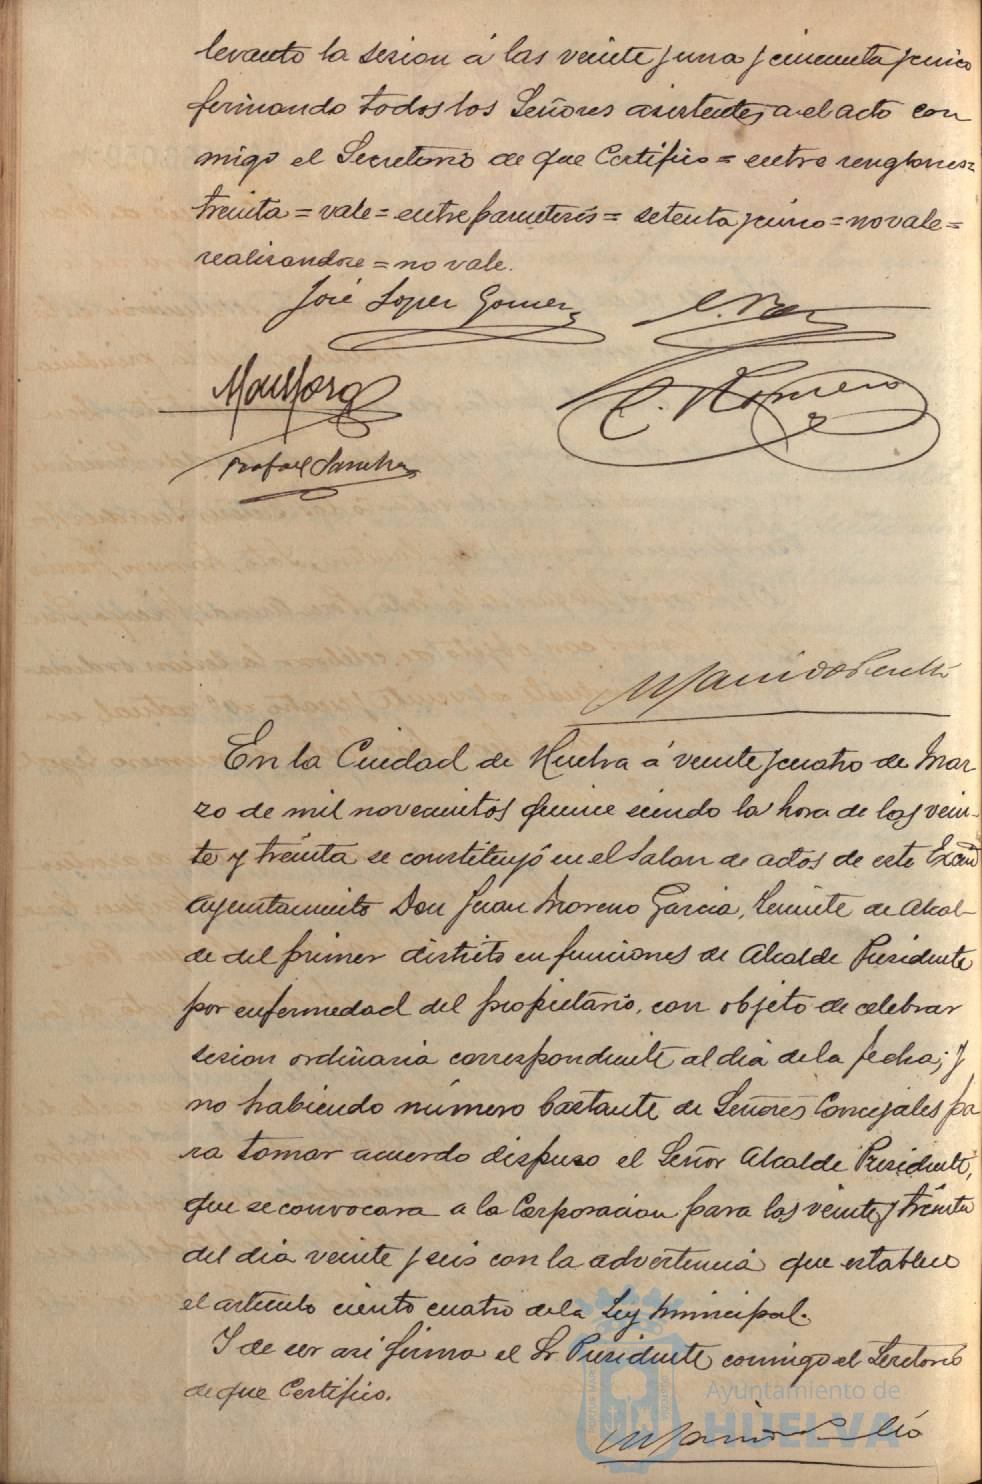 levanto la sesion á las veinte y una y cincuenta y cinco
firmando todos los Señores asistentes a el acto con
migo el Secretario de que Certifico = entre renglones =
treinta = vale = entre parentesis = setenta y cinco = no vale =
realisandose = no vale.
José Lopez Gomez
C. Romero
Rafael Sanchez
En la Ciudad de Huelva á veinte y cuatro de Mar-
zo de mil novecientos quince siendo la hora de las vein-
te y treinta se constituyó en el Salon de actos de este Excmo
Ayuntamiento Don Juan Moreno Garcia, Teniente de Alcal-
de del primer distrito en funciones de Alcalde Presidente
por enfermedad del propietario, con objeto de celebrar
sesion ordinaria correspondiente al dia de la fecha; y
no habiendo número bastante de Señores Concejales pa
ra tomar acuerdo dispuso el Señor Alcalde Presidente,
que se convocara a la Corporacion para las veinte y treinta
del dia veinte y seis con la advertencia que establece
el articulo ciento cuatro de la Ley Municipal.
Y de ser asi firma el Sr Presidente conmigo el Secretario
de que Certifico.
Ayuntamiento de
HUELVA